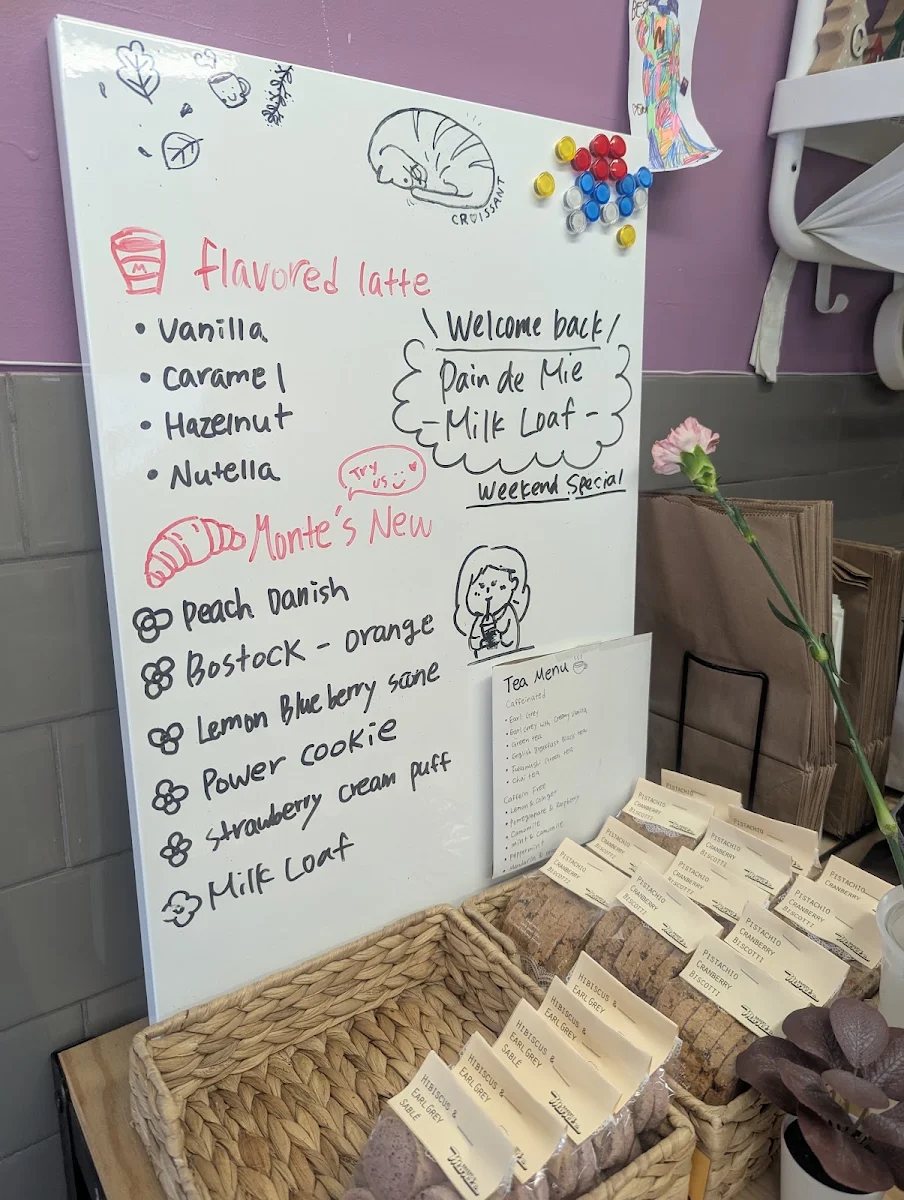 BES
M
DEAR
CROISSANT
M
flavored latte
• Vanilla
• caramel
• Hazelnut
• Nutella
\ Welcome back /
Pain de Mie
- Milk Loaf -
Weekend Special
Try
us
Monte's New
Peach Danish
Bostock - orange
Lemon Blueberry scone
Power cookie
strawberry cream puff
Milk Loaf
Tea Menu
Caffeinated
• Earl Grey
• Earl Grey with Creamy Vanilla
• Green tea
• English Breakfast Black tea
• Chai tea
Caffein Free
• Lemon & Ginger
• Pomegranate & Raspberry
• Camomile
• Mint & Camomile
• Peppermint
PISTACHIO
CRANBERRY
BISCOTTI
PISTACHIO
CRANBERRY
PISTACHIO
CRANBERRY
BISCOTTI
PISTACHIO
CRANBERRY
PISTACHIO
CRANBERRY
BISCOTTI
PISTACHIO
CRANBERRY
PISTACHIO
CRANBERRY
BISCOTTI
PISTACHIO
CRANBERRY
BISCOTTI
PISTACHIO
CRANBERRY
BISCOTTI
PISTACHIO
CRANBERRY
BISCOTTI
HIBISCUS &
EARL GREY
HIBISCUS &
EARL GREY
HIBISCUS &
EARL GREY
SABLÉ
HIBISCUS &
EARL GREY
SABLÉ
HIBISCUS &
EARL GREY
SABLÉ